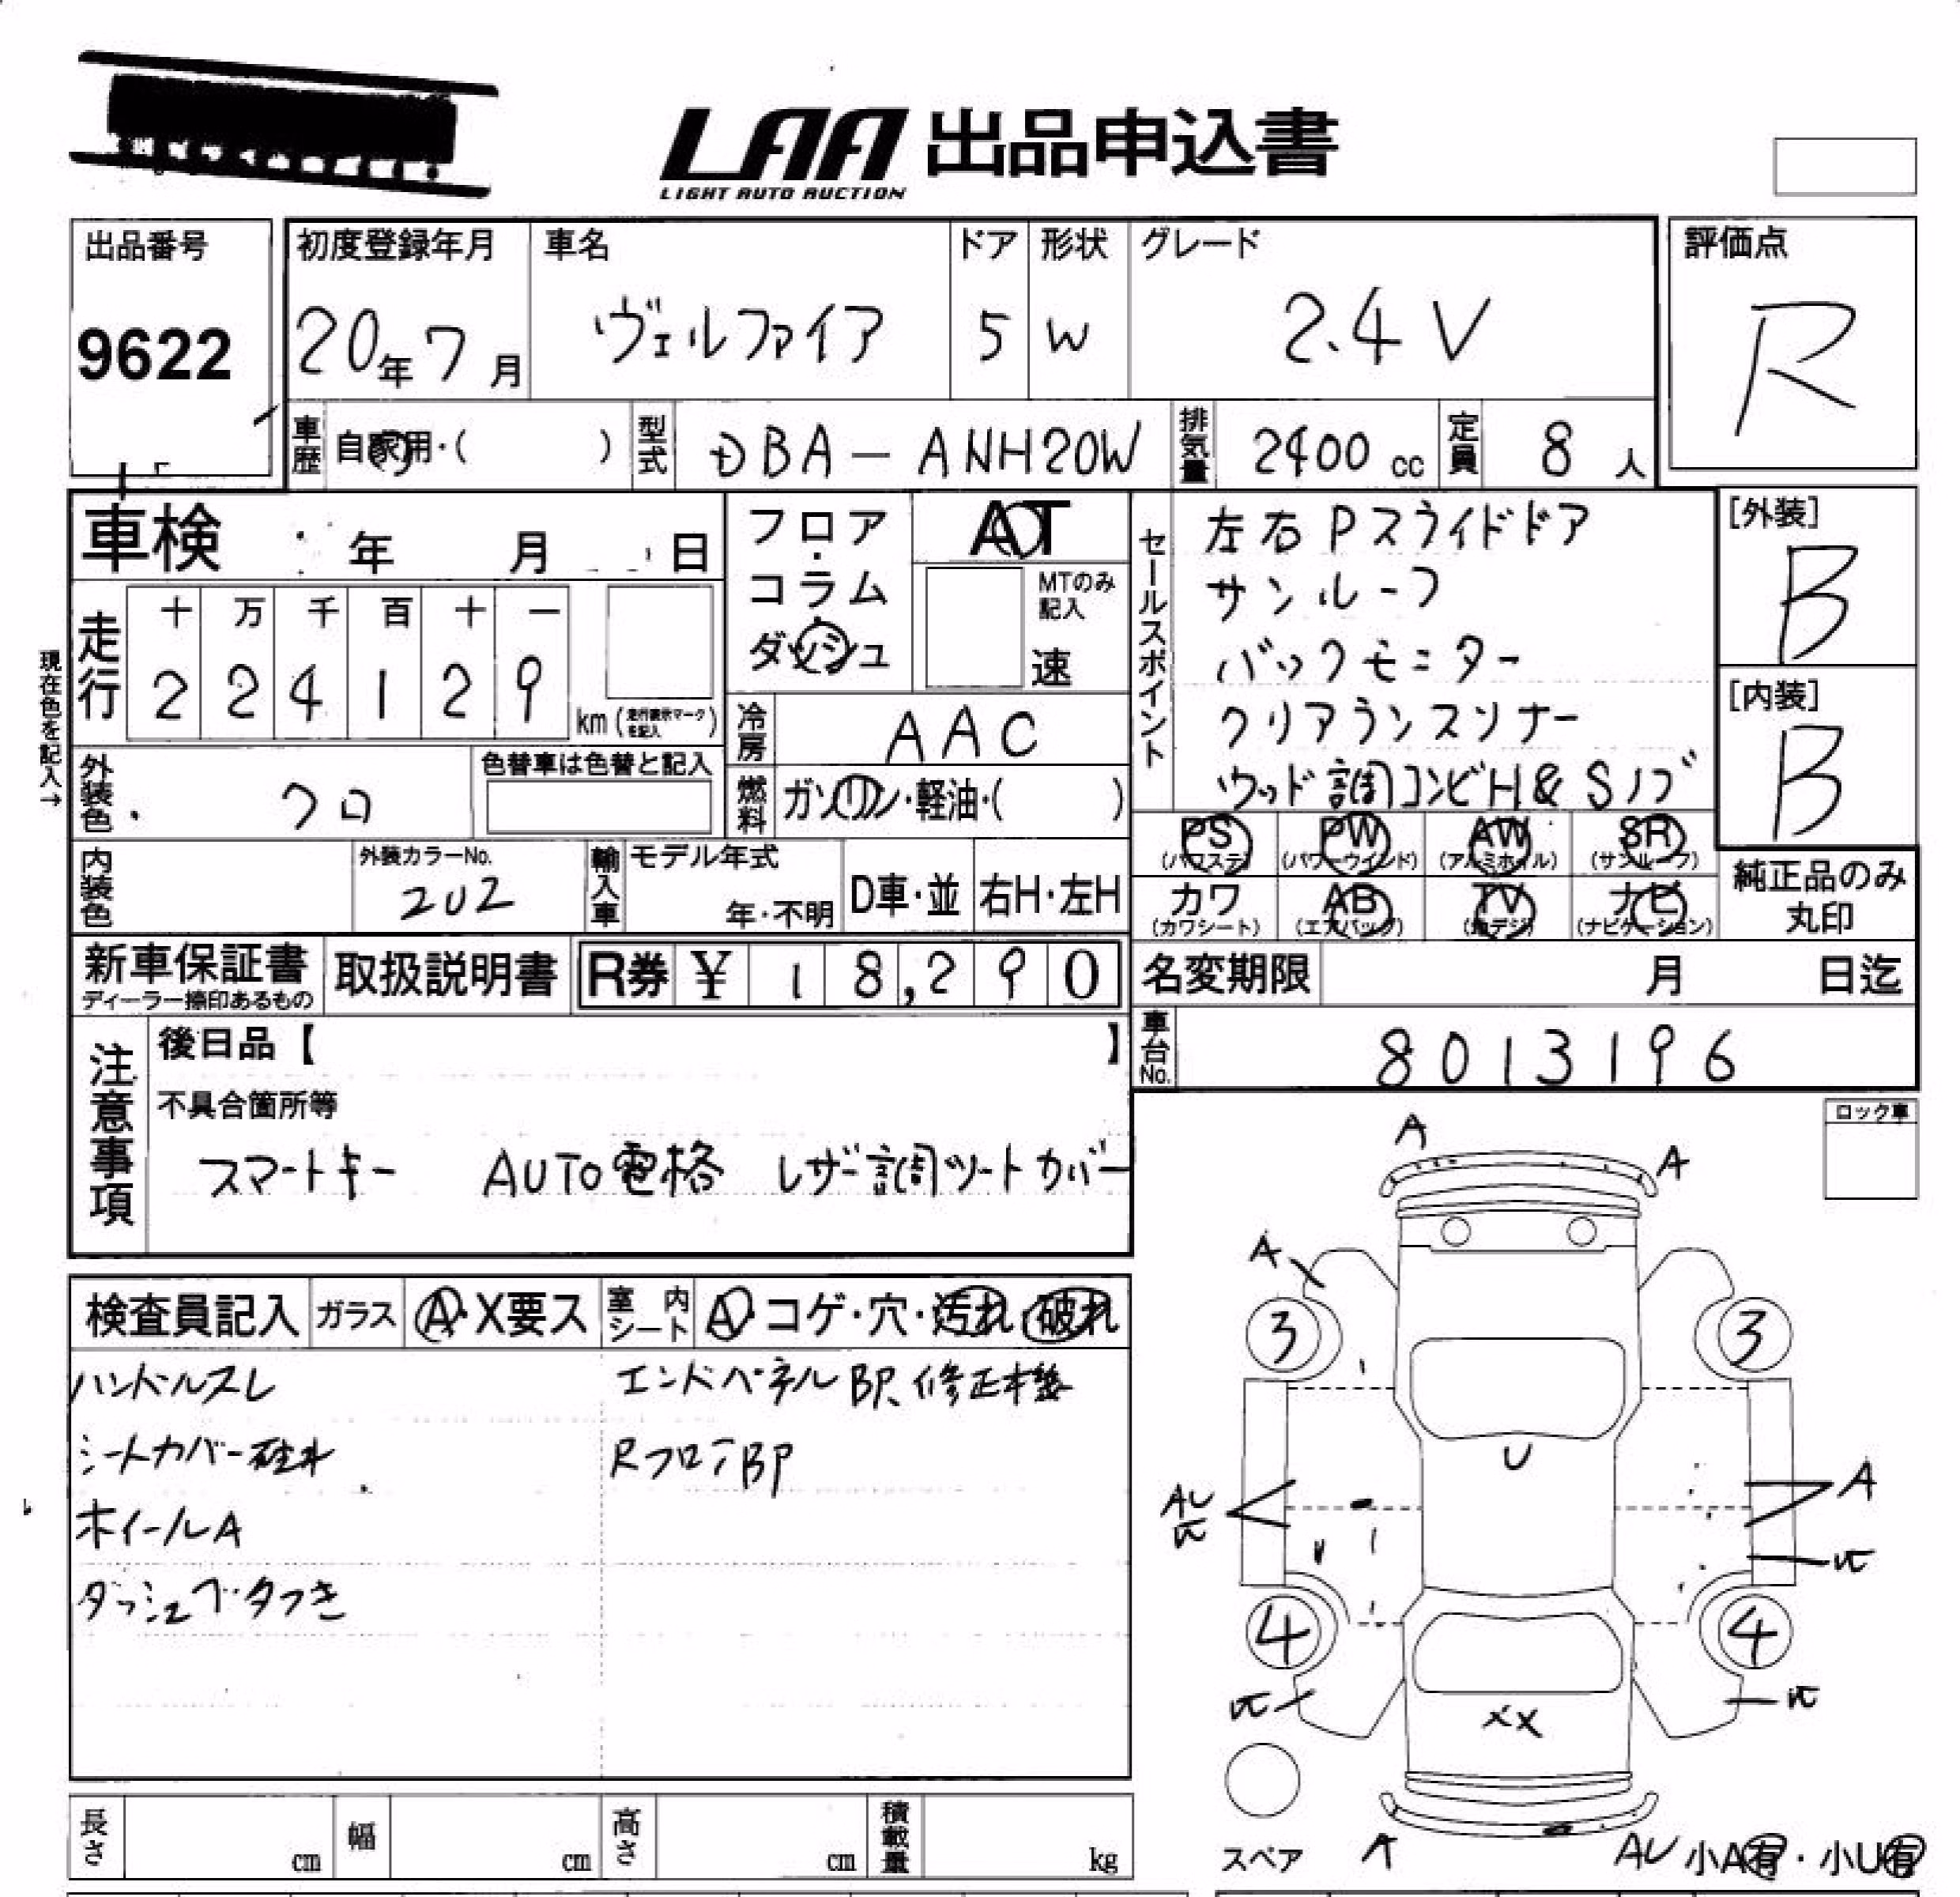 LAA 出品申込書
LIGHT AUTO AUCTION
出品番号
9622
初度登録年月
20年7月
車名
ヴェルファイア
ドア
5
形状
W
グレード
2.4V
評価点
R
車歴 自家用・( )
型式 DBA-ANH20W
排気量 2400cc
定員 8人
車検 年 月 日
走行
十 万 千 百 十 一
2 2 4 1 2 9 km(走行表示マークを記入)
現在色を記入→
フロア・コラム
ダッシュ
AT
MTのみ記入
速
冷房 AAC
燃料 ガソリン・軽油・( )
外装色 クロ
色替車は色替と記入
内装色
外装カラーNo.
202
輸入車
モデル年式
年・不明
D車・並
右H・左H
セールスポイント
左右Pスライドドア
サンルーフ
バックモニター
クリアランスソナー
ウッド調コンビH&Sノブ
[外装]
B
[内装]
B
PS(パワステ) PW(パワーウインド) AW(アルミホイル) SR(サンルーフ)
カワ(カワシート) AB(エアバッグ) TV(地デジ) ナビ(ナビゲーション)
純正品のみ丸印
新車保証書
ディーラー捺印あるもの
取扱説明書
R券 ¥ 18,290
名変期限 月 日迄
車台No. 8013196
注意事項
後日品【 】
不具合箇所等
スマートキー AUTO電格 レザー調シートカバー
ロック車
検査員記入
ガラス A・X要ス
室内シート A・コゲ・穴・汚れ・破れ
ハンドルスレ
シートカバー破れ
ホイールA
ダッシュベタつき
エンドパネルBP、修正機
RフロアBP
A
A
A
3
3
U
AU
A
4
4
XX
スペア
A
AU 小A有・小U有
長さ cm
幅 cm
高さ cm
積載量 kg